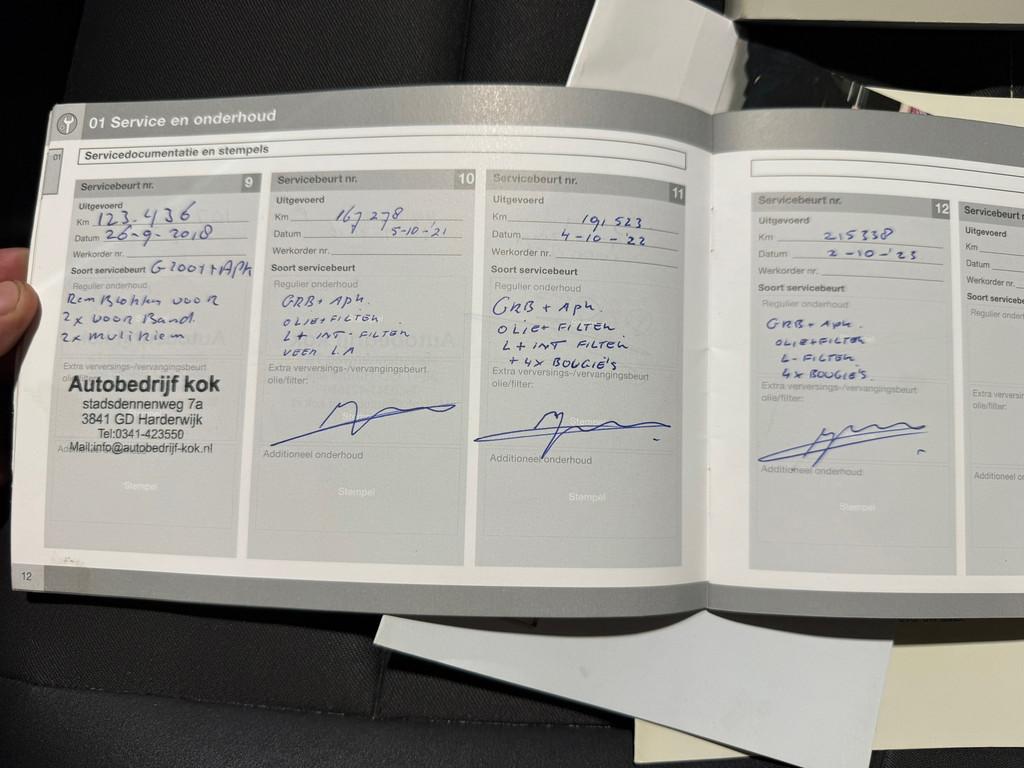 01 Service en onderhoud
01
Servicedocumentatie en stempels
Servicebeurt nr. 9
Uitgevoerd
Km 123.436
Datum 26-9-2018
Werkorder nr.
Soort servicebeurt G200Y+APK
Regulier onderhoud
Rem Blokken voor
2x voor Band
2x muliRiem
Extra verversings-/vervangingsbeurt
olie/filter:
Autobedrijf kok
stadsdennenweg 7a
3841 GD Harderwijk
Tel:0341-423550
Mail:info@autobedrijf-kok.nl
Stempel
Servicebeurt nr. 10
Uitgevoerd
Km 167 278
Datum 5-10-'21
Werkorder nr.
Soort servicebeurt
Regulier onderhoud
GRB + APK.
OLIE+ FILTER
L + INT- FILTER
VEER L.A
Extra verversings-/vervangingsbeurt
olie/filter:
Additioneel onderhoud
Stempel
Servicebeurt nr. 11
Uitgevoerd
Km 191 523
Datum 4-10-'22
Werkorder nr.
Soort servicebeurt
Regulier onderhoud
GRB + APK.
OLIE+ FILTER
L + INT FILTER
+ 4x BOUGIE'S
Extra verversings-/vervangingsbeurt
olie/filter:
Additioneel onderhoud
Stempel
12
Servicebeurt nr. 12
Uitgevoerd
Km 215338
Datum 2-10-'23
Werkorder nr.
Soort servicebeurt
Regulier onderhoud
GRB + APK.
OLIE+FILTER
L- FILTER
4x BOUGIE'S
Extra verversings-/vervangingsbeurt
olie/filter:
Additioneel onderhoud:
Stempel
Servicebeurt n
Uitgevoerd
Km
Datum
Werkorder nr.
Soort servicebe
Regulier onderh
Extra verversin
olie/filter:
Additioneel on